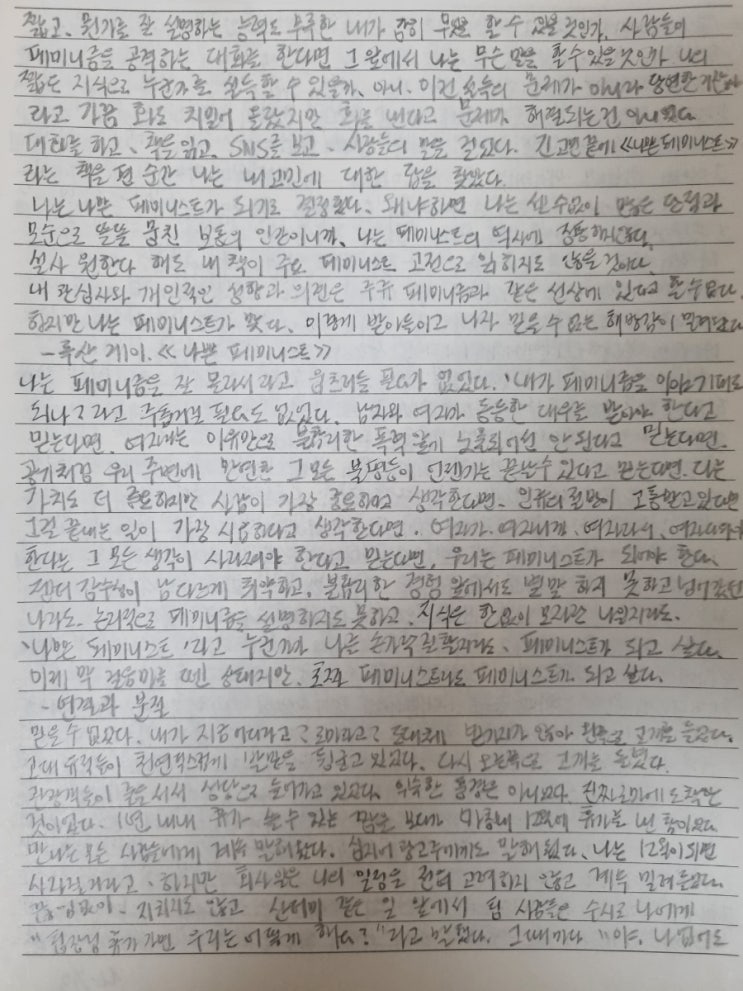 짧고, 뭔가를 잘 설명하는 능력도 부족한 내가 감히 무엇을 할 수 있을 것인가. 사람들이
페미니즘을 공격하는 대화를 한다면 그 앞에서 나는 무슨 말을 할 수 있을 것인가 나의
짧은 지식으로 누군가를 설득할 수 있을까. 아니. 이건 설득의 문제가 아니라 당연한 거잖아
라고 가끔 화도 치밀어 올랐지만 화를 낸다고 문제가 해결되는 건 아니었다.
대화를 하고, 책을 읽고, SNS를 보고, 사람들의 말을 걸었다. 긴 고민 끝에 <<나쁜 페미니스트>>
라는 책을 편 순간 나는 내 고민에 대한 답을 찾았다.
나는 나쁜 페미니스트가 되기로 결정했다. 왜냐하면 나는 셀 수 없이 많은 단점과
모순으로 똘똘 뭉친 보통의 인간이니까. 나는 페미니스트의 역사에 정통하지 않다.
설사 원한다 해도 내 책이 주요 페미니스트 고전으로 읽히지도 않을 것이다.
내 관심사와 개인적인 성향과 의견은 주류 페미니즘과 같은 선상에 있다고 할 수 없다.
하지만 나는 페미니스트가 맞다. 이렇게 받아들이고 나자 믿을 수 없는 해방감이 밀려왔다
- 록산 게이. <<나쁜 페미니스트>>
나는 페미니즘을 잘 몰라서라고 움츠러들 필요가 없었다. '내가 페미니즘을 이야기해도
되나?'라고 주춤거릴 필요도 없었다. 남자와 여자가 동등한 대우를 받아야 한다고
믿는다면. 여자라는 이유만으로 불합리한 폭력 앞에 노출되어선 안 된다고 믿는다면.
공기처럼 우리 주변에 만연한 그 모든 불평등이 언젠가는 끝날 수 있다고 믿는다면. 다른
가치도 더 중요하지만 사람이 가장 중요하다고 생각한다면. 인류의 절반이 고통받고 있다면
그걸 끝내는 일이 가장 시급하다고 생각한다면. 여자가. 여자니까. 여자라서. 여자
한다는 그 모든 생각이 사라져야 한다고 믿는다면, 우리는 페미니스트가 되어야 한다.
젠더 감수성이 남다르게 취약하고, 불합리한 경험 앞에서도 별말 하지 못하고 넘어갔던
나라도. 논리적으로 페미니즘을 설명하지도 못하고, 지식은 한없이 모자란 나일지라도.
'나쁜 페미니스트'라고 누군가가 나를 손가락질할지라도. 페미니스트가 되고 싶다.
이제 막 걸음마를 뗀 상태지만. 페미니스트라도 페미니스트가 되고 싶다.
- 연결과 분절
믿을 수 없었다. 내가 지금 어디라고? 로마라고? 도대체 믿기지가 않아 왼쪽으로 고개를 돌렸다.
고대 유적들이 천연덕스럽게 발밑을 뒹굴고 있었다. 다시 오른쪽으로 고개를 돌렸다.
관광객들이 줄을 서서 성당으로 들어가고 있었다. 익숙한 풍경은 아니었다. 진짜 로마에 도착한
것이었다. 1년 내내 휴가 쓸 수 있는 마침내 12월에 휴가를 낸 참이었다.
만나는 모든 사람들에게 계속 말해왔다. 심지어 광고주에게도 말해 뒀다. 나는 12월이 되면
사라질 거라고. 하지만 회사일은 나의 일정을 전혀 고려하지 않고 계속 밀려들었다.
끊임없이. 지치지도 않고 산더미 같은 일 앞에서 팀 사람들은 수시로 나에게
"팀장님 휴가 가면 우리는 어떻게 해요?"라고 말했다. 그때마다 "야. 나 없어도